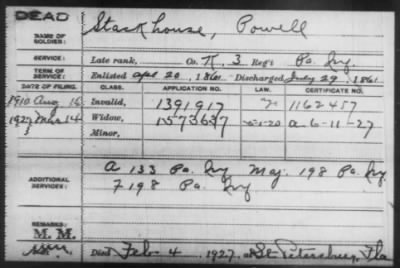 DEAD
NAME OF SOLDIER: Stackhouse, Powell
SERVICE: Late rank, Co. K, 3 Reg't Pa. Inf.
TERM OF SERVICE: Enlisted Apr 20, 1861 Discharged July 29, 1861
DATE OF FILING. CLASS. APPLICATION NO. LAW. CERTIFICATE NO.
1910 Aug 16 Invalid, 1391917 1162457
1927 Mar 14 Widow, 1573637 5-1-20 a 6-11-27
Minor,
ADDITIONAL SERVICES: A 133 Pa. Inf Maj. 198 Pa. Inf
F 198 Pa. Inf
REMARKS:
M. M.
Died Feb. 4, 1927, at St. Petersburg, Fla